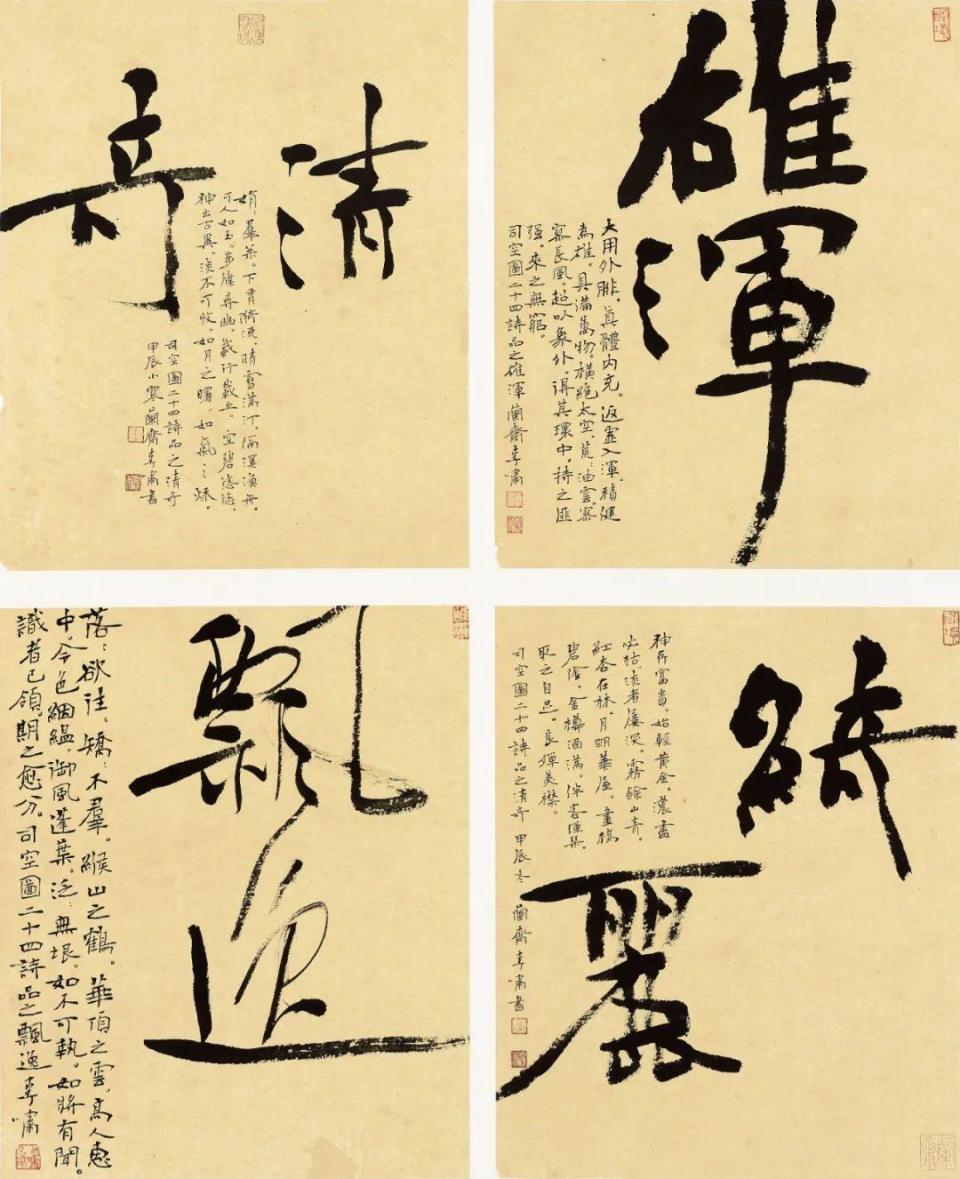 清奇
娟：羣松。下有漪流。晴雪滿汀，隔溪漁舟。
可人如玉。步屧尋幽。載行載止。空碧悠悠。
神出古異。淡不可收。如月之曙。如氣之秋。
司空圖二十四詩品之清奇
甲辰小寒蘭齋李嘯書
雄渾
大用外腓，真體内充。返虛入渾，積健
為雄。具備萬物，橫絕太空。荒：油雲，寥
寥長風。超以象外，得其環中，持之匪
强，來之無窮。
司空圖二十四詩品之雄渾 蘭齋李嘯
飄逸
落：欲往，矯：不羣。緱山之鶴。華頂之雲，高人惠
中，令色絪縕。御風蓬葉。泛：無垠。如不可執，如將有聞。
識者已領，期之愈分。司空圖二十四詩品之飄逸 李嘯
綺麗
神存富貴。始輕黃金。濃盡
必枯，淺者屢深。霧餘山青，
紅杏在林，月明華屋。畫橋
碧陰，金樽酒滿，伴客彈琴。
取之自足。良殫美襟。
司空圖二十四詩品之清奇 甲辰冬 蘭齋李嘯書